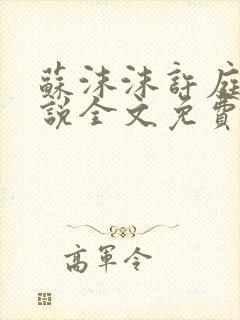 蘇沫沫許庭
說全文免費
高軍令